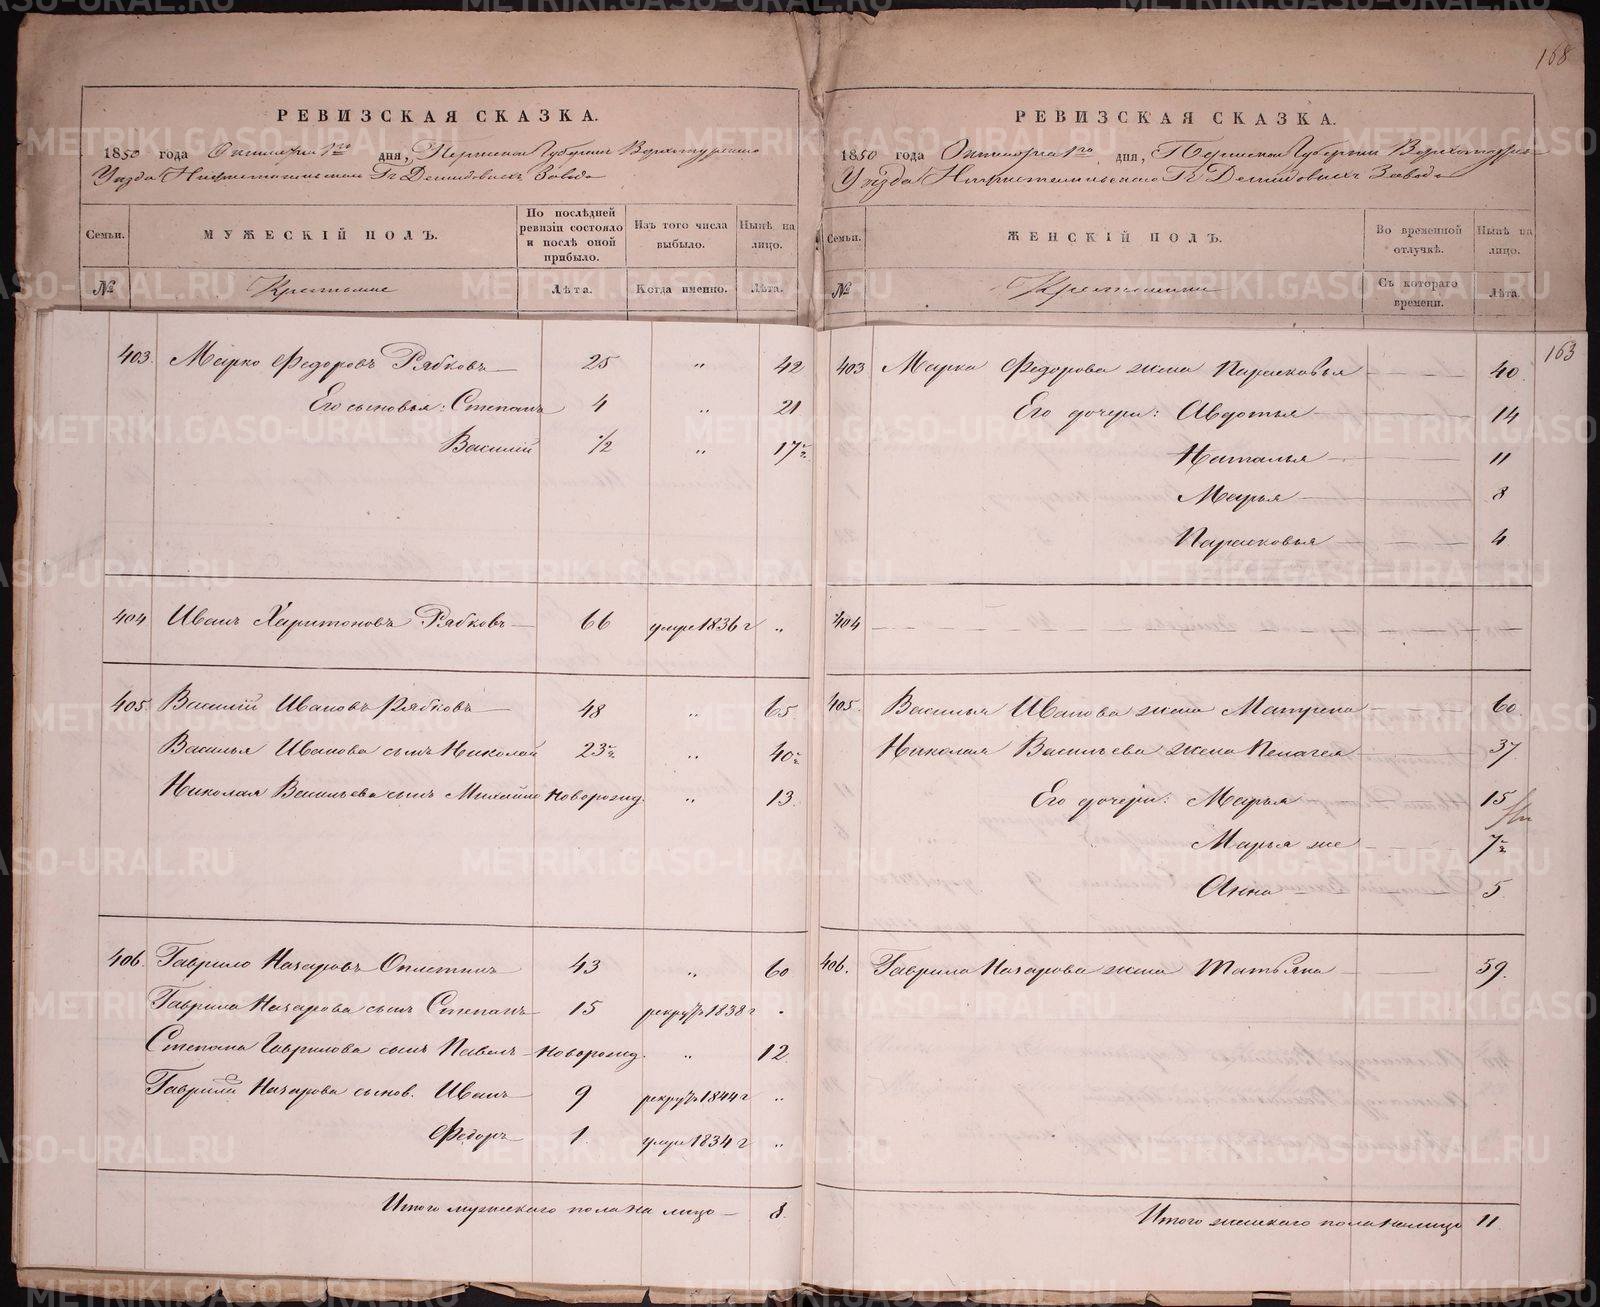 168
РЕВИЗСКАЯ СКАЗКА.
1850 года Октября 1го дня, Пермской Губернии Верхотурскаго
Уѣзда Нижнетагильскаго Гг. Демидовыхъ Завода
Семьи.
МУЖЕСКІЙ ПОЛЪ.
По послѣдней ревизіи состояло и послѣ оной прибыло.
Изъ того числа выбыло.
Нынѣ на лицо.
№
Крестьяне
Лѣта.
Когда именно.
Лѣта.
403. Марко Федоровъ Рябковъ 25 " 42
Его сыновья: Степанъ 4 " 21
Василій 1/2 " 17½
404 Иванъ Харитоновъ Рябковъ 66 умре 1836 г "
405. Василій Ивановъ Рябковъ 48 " 65
Василья Иванова сынъ Николай 23½ " 40½
Николая Васильева сынъ Михайло новорожд. " 13
406. Гаврило Назаровъ Оплеткинъ 43 " 60
Гаврила Назарова сынъ Степанъ 15 рекру. 1838 г "
Степана Гаврилова сынъ Павелъ новорожд. " 12
Гаврила Назарова сынов. Иванъ 9 рекру. 1844 г "
Федоръ 1 умре 1834 г "
Итого мужескаго пола на лицо 8
РЕВИЗСКАЯ СКАЗКА.
1850 года Октября 1го дня, Пермской Губернии Верхотурскаго
Уѣзда Нижнетагильскаго Гг. Демидовыхъ Завода
Семьи.
ЖЕНСКІЙ ПОЛЪ.
Во временной отлучкѣ.
Нынѣ на лицо.
№
Крестьянки
Съ котораго времени.
Лѣта.
163
403 Марка Федорова жена Парасковья 40
Его дочери: Авдотья 14
Наталья 11
Марья 8
Парасковья 4
404
405. Василья Иванова жена Матрена 60
Николая Васильева жена Пелагея 37
Его дочери: Марья 15
Марья же 7½
Анна 5
406. Гаврила Назарова жена Татьяна 59.
Итого женскаго пола на лицо 11
METRIKI.GASO-URAL.RU